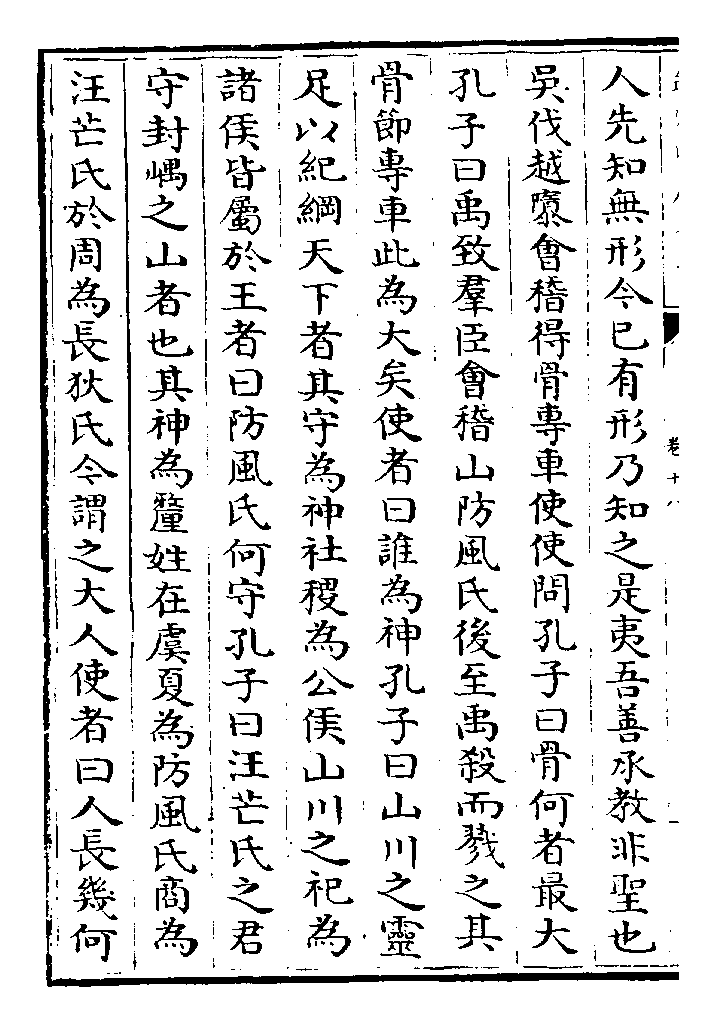 人先知無形今已有形乃知之是夷吾善承教非聖也
吳伐越隳會稽得骨專車使使問孔子曰骨何者最大
孔子曰禹致羣臣會稽山防風氏後至禹殺而戮之其
骨節專車此為大矣使者曰誰為神孔子曰山川之靈
足以紀綱天下者其守為神社稷為公侯山川之祀為
諸侯皆屬於王者曰防風氏何守孔子曰汪芒氏之君
守封嵎之山者也其神為釐姓在虞夏為防風氏商為
汪芒氏於周為長狄氏今謂之大人使者曰人長幾何
卷十八